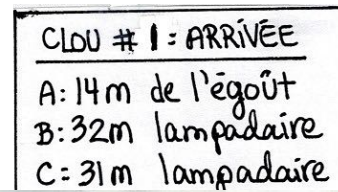 CLOU # 1 : ARRIVÉE
A: 14m de l'égoût
B: 32m lampadaire
C: 31m lampadaire